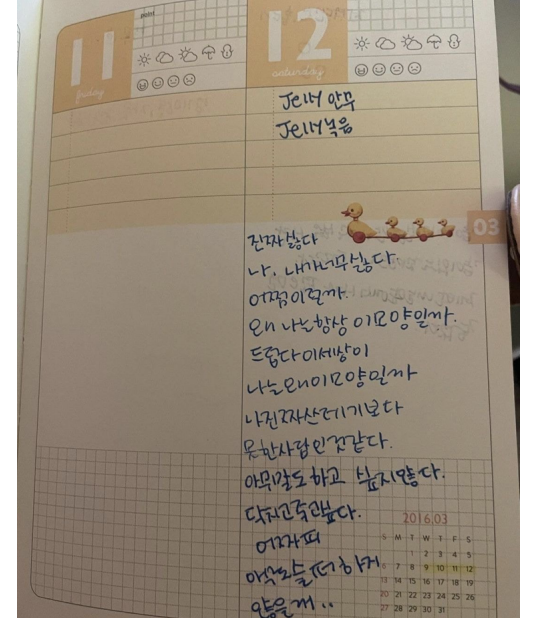 point
11 12
friday saturday
Jelly 안무
Jelly 녹음
03
진짜싫다
나. 내가너무싫다.
어쩜이럴까.
왜 나는항상 이모양일까.
드럽다이세상이
나는왜이모양일까
나진짜쓰레기보다
못한사람인것같다.
아무말도하고 싶지않다.
닥치고죽고싶다.
어차피
아무도슬퍼하지
2016.03
S M T W T F S
1 2 3 4 5
6 7 8 9 10 11 12
13 14 15 16 17 18 19
20 21 22 23 24 25 26
27 28 29 30 31